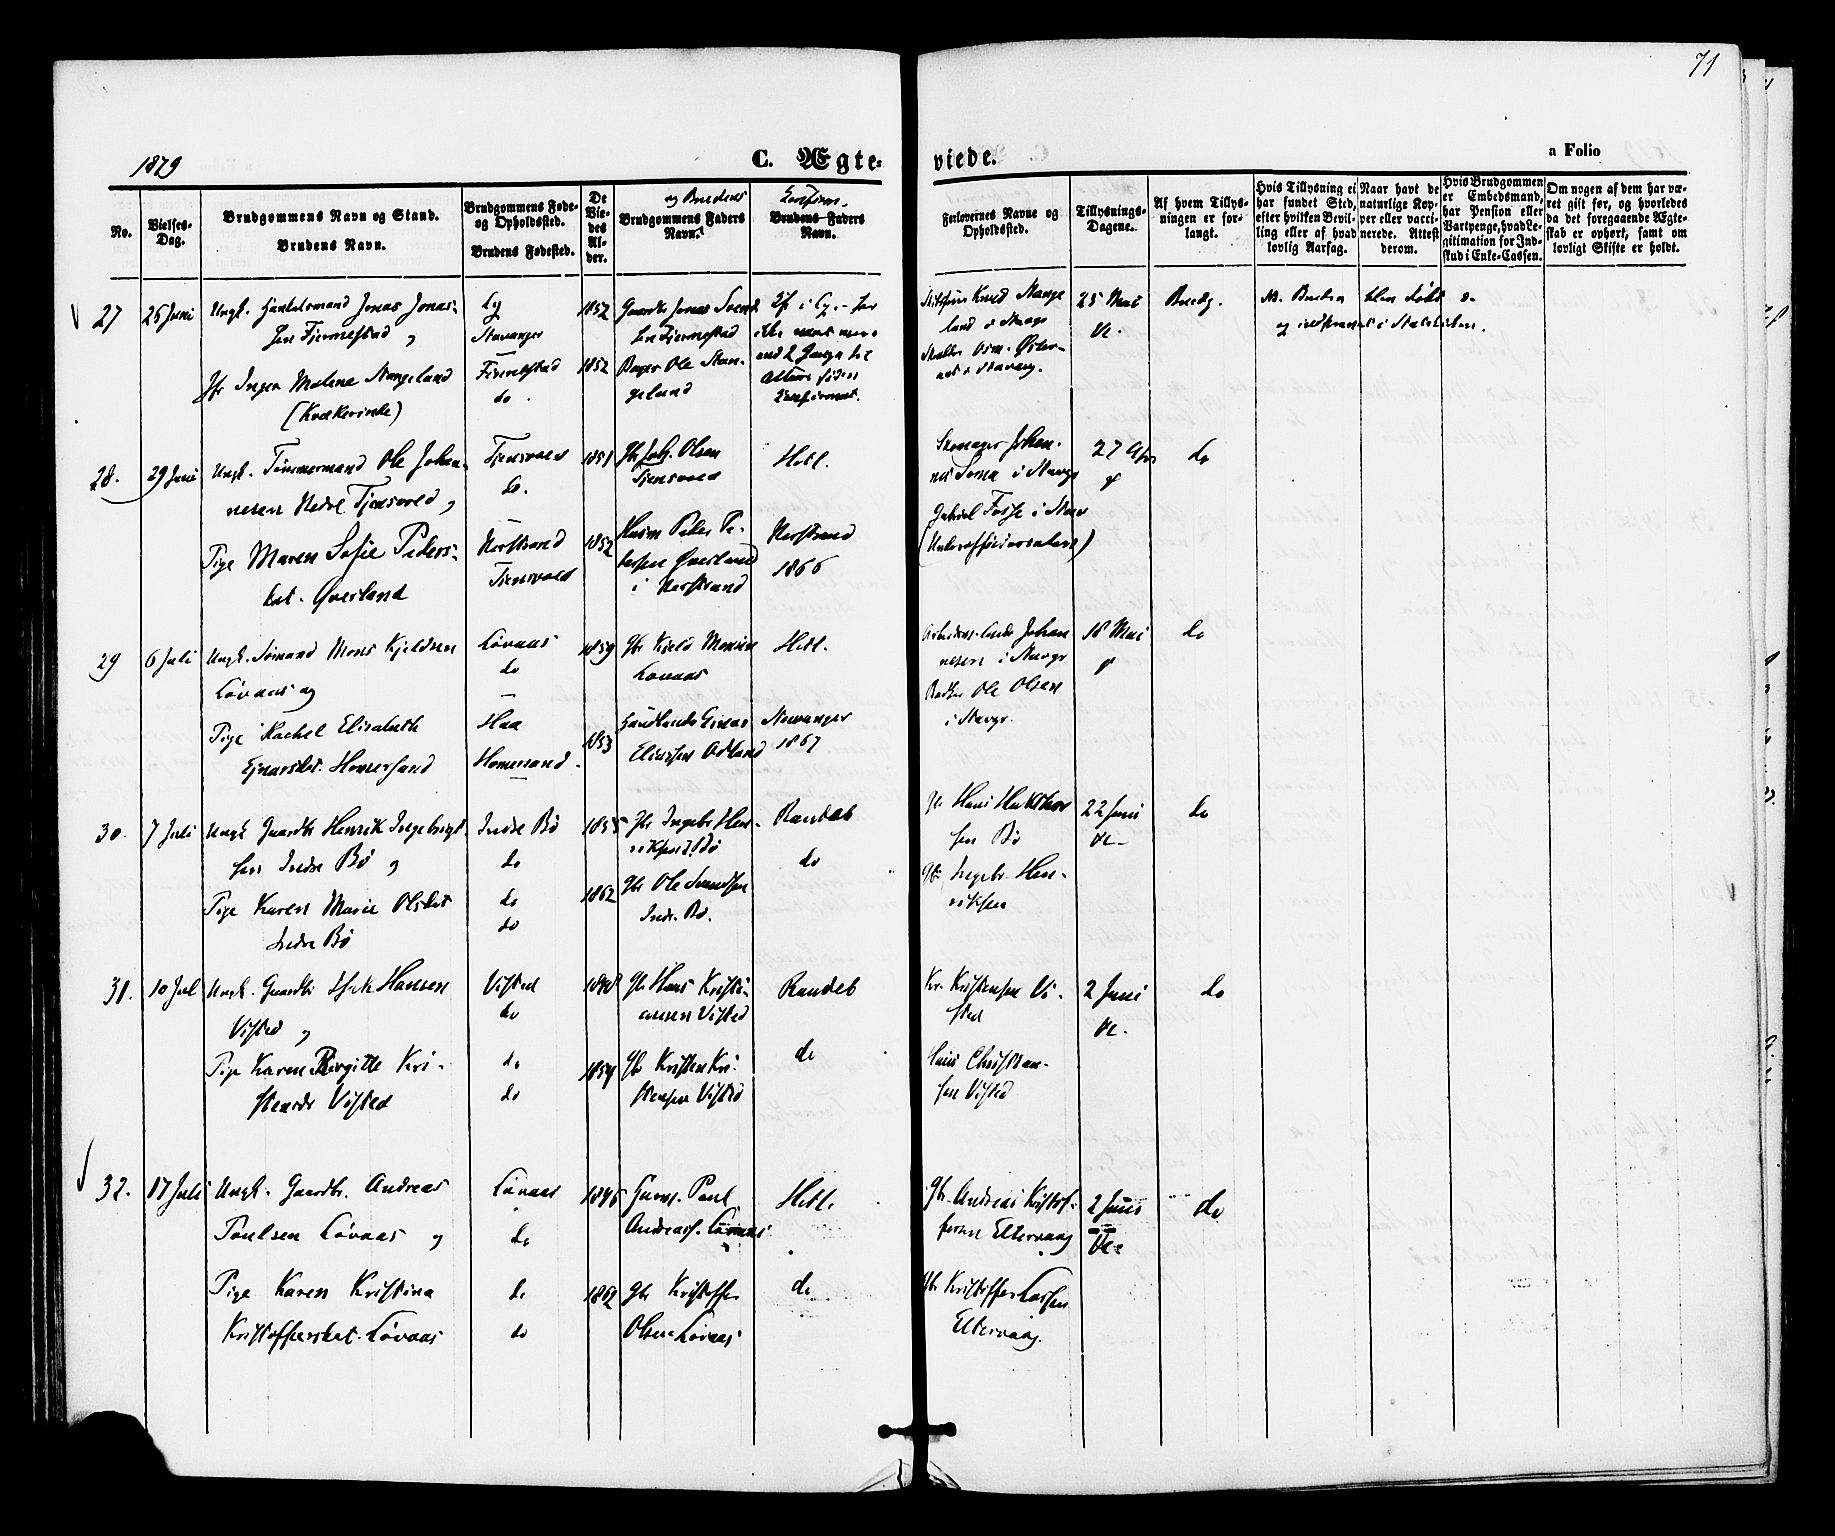 71
1879
C. Ægte-
viede.
a Folio
No.
Vielses-
Dag.
Brudgommens Navn og Stand.
Brudens Navn.
Brudgommens Føde-
og Opholdssted.
Brudens Fødested.
De
Vie-
des
Al-
der.
og Brudens
Brudgommens Faders
Navn.
Confirm.
Brudens Faders
Navn.
Forlovernes Navne og
Opholdssted.
Tillysnings-
Dagene.
Af hvem Tillys-
ningen er for-
langt.
Hvis Tillysning ei
har fundet Sted,
efter hvilken Bevil-
ling eller af hvad
lovlig Aarsag.
Naar havt de
naturlige Kop-
per eller vacci-
nerede. Attest
derom.
Hvis Brudgommen
er Embedsmand,
har Pension eller
Vartpenge, hvad Le-
gitimation for Ind-
skud i Enke-Cassen.
Om nogen af dem har væ-
ret gift før, og hvorledes
da det foregaaende Ægte-
skab er ophørt, samt om
lovligt Skifte er holdt.
27
26 Juni
Ungk. Handelsmand Jonas Jonas-
sen Tjermestad
Jfr Inger Malene Stangeland
(Kvækerinde)
Stavanger
do
1852
1852
Gaardbr Jonas Svend-
sen Tjermestad
Ole Stan-
geland
Knud Stange
land i Stavgr
25 Mai
Brudg.
28.
29 Juni
Ungk. Tømmermand Ole Johan-
nesen Nedre Tjensvold
Pige Maren Sofie Peders-
dat. Qverland
Tjensvold
do.
Nerstrand
Tjensvold
1851
1852
Gbr Joh. Olsen
Tjensvold
Husm Peder Pe-
dersen Qverland
i Nerstrand
Hetl.
Nerstrand
1866
Skomager Johan-
nes Soma i Stavgr
Gabriel Fosse i Stav
(Underofficersaaten)
27 Apr
do
29
6 Juli
Ungk. Sømand Mons Kjeldsen
Løvaas og
Pige Rachel Elisabeth
Ejnarsdat. Homersand
Løvaas
do
Haa
Homersand
1859
1853
Gbr Kjeld Monsen
Løvaas
Einar
Elinssen Odland
Hetl.
Stavanger
1867
Johan
nesen i Stavgr
Ole Olsen
i Stavgr.
18 Mai
do
30.
7 Juli
Ungk Gaardbr Henrik Ingebrigt-
sen Indre Bø
Pige Karen Marie Olsdat
Indre Bø
Indre Bø
do
do
do
1855
1862
Gbr Ingebr Hen-
riksen I. Bø
Gbr Ole Svendsen
Indr. Bø.
Randeb
do
sen Bø
Gbr Ingebr. Hen-
riksen
22 Juni
do
31.
10 Jul
Ungk. Gaardbr Hansen
Visted
Pige Karen Birgitte Kri-
stensdr Visted
Visted
do
do
do
1848
1859
Gbr Hans Kristi-
ansen Visted
Gbr Kristen Kri-
stensen Visted
Randeb
do
Kr. Kristensen Vi-
sted
Hans Christian-
sen Visted
2 Juni
do
32.
17 Juli
Ungk. Gaardbr. Andreas
Poulsen Løvaas og
Pige Karen Kristina
Kristoffersdat. Løvaas
Løvaas
do
do
do
1846
1862
Paul
Andreass. Løvaas
Gbr Kristoffer
Olsen Løvaas
Hetl.
do
Gbr Andreas Kristof-
fersen Eltervaag
Gbr Kristoffer Larsen
Eltervaag.
2 Juni
do